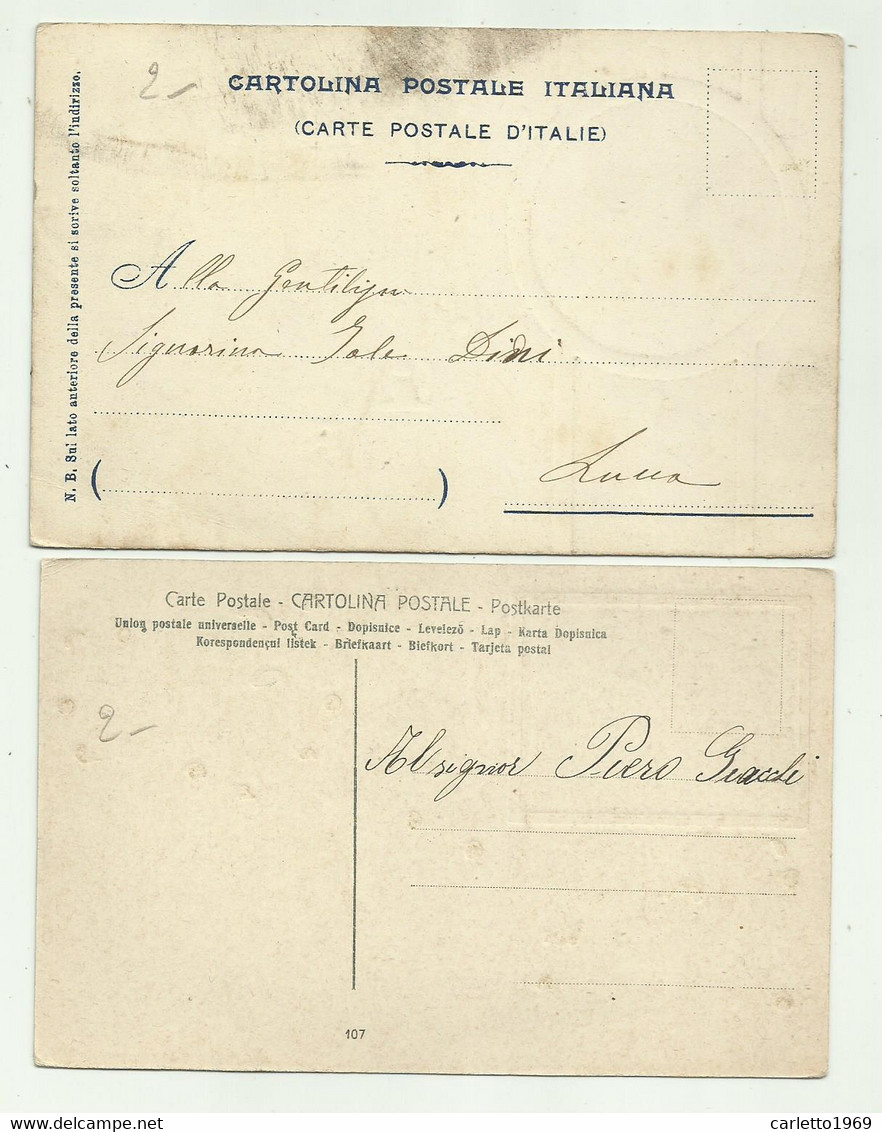 2-
CARTOLINA POSTALE ITALIANA
(CARTE POSTALE D'ITALIE)
N. B. Sul lato anteriore della presente si scrive soltanto l'indirizzo.
Alla
Signorina Iole Dini
Lucca
Carte Postale - CARTOLINA POSTALE - Postkarte
Union postale universelle - Post Card - Dopisnice - Levelező - Lap - Karta Dopisnica
Korespondençul listek - Briefkaart - Blefkort - Tarjeta postal
2-
Al signor Piero Giacchi
107
carletto1969